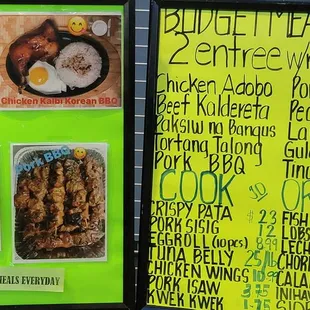 Chicken Kalbi Korean BBQ
Pork BBQ
MEALS EVERYDAY
BUDGET MEA
2 entree w/r
Chicken Adobo
Beef Kaldereta
Paksiw ng Bangus
Tortang Talong
Pork BBQ
Po
Pe
La
Gul
Tin
COOK
OR
CRISPY PATA $23
PORK SISIG 12
EGGROLL (10pcs) 8.99
TUNA BELLY 25/lb
CHICKEN WINGS 10.99
PORK ISAW 3.75
KWEK KWEK 1.75
FISH
LOBS
LECH
CHOR
CALA
INIHAW
SIDE